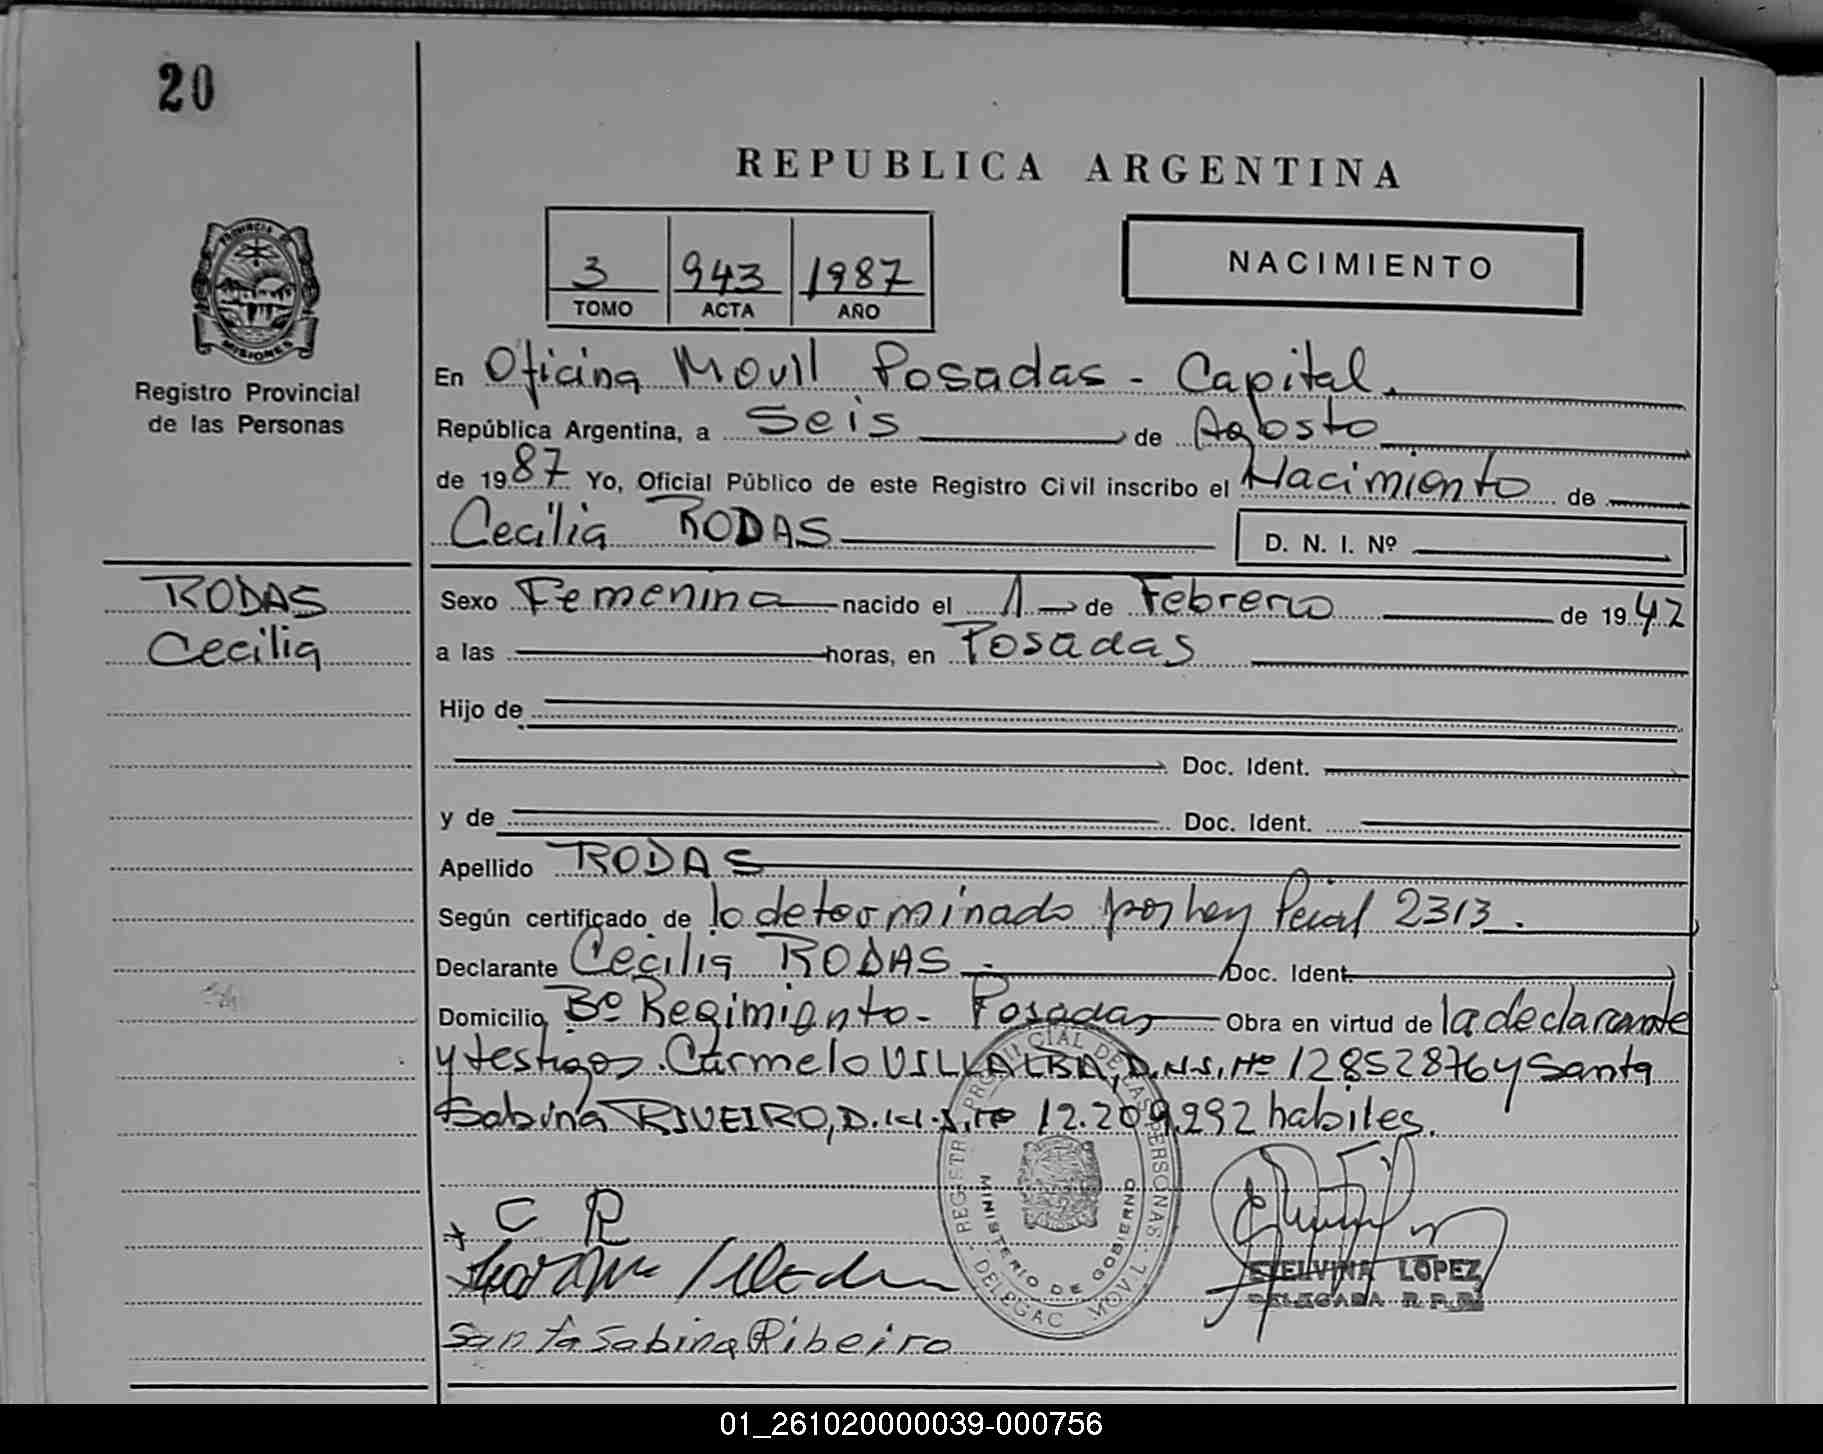 20
REPUBLICA ARGENTINA
3 943 1987
TOMO ACTA AÑO
NACIMIENTO
PROVINCIA DE
MISIONES
Registro Provincial
de las Personas
En Oficina Movil Posadas - Capital.
República Argentina, a Seis de Agosto
de 1987 Yo, Oficial Público de este Registro Civil inscribo el Nacimiento de
Cecilia RODAS D. N. I. Nº
RODAS
Cecilia
Sexo Femenina nacido el 1 de Febrero de 1942
a las horas, en Posadas
Hijo de
Doc. Ident.
y de Doc. Ident.
Apellido RODAS
Según certificado de lo determinado por Ley Pcial 2313.
Declarante Cecilia RODAS - Doc. Ident.
Domicilio Bº Regimiento - Posadas Obra en virtud de la declarante
y testigos. Carmelo VILLALBA, D.N.I. Nº 12852876 y Santa
Sabina RIVEIRO, D.N.I. Nº 12.209.292 habiles.
REGISTRO PROVINCIAL DE LAS PERSONAS
MINISTERIO DE GOBIERNO
DELEGAC MOVIL
C R
ETELVINA LOPEZ
DELEGADA R.P.P.
Santa Sabina Ribeiro
01_261020000039-000756